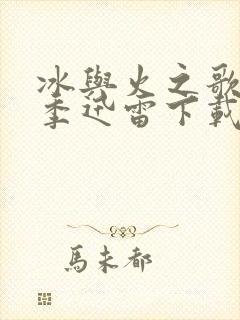 冰與火之歌
季迅雷下載
馬未都